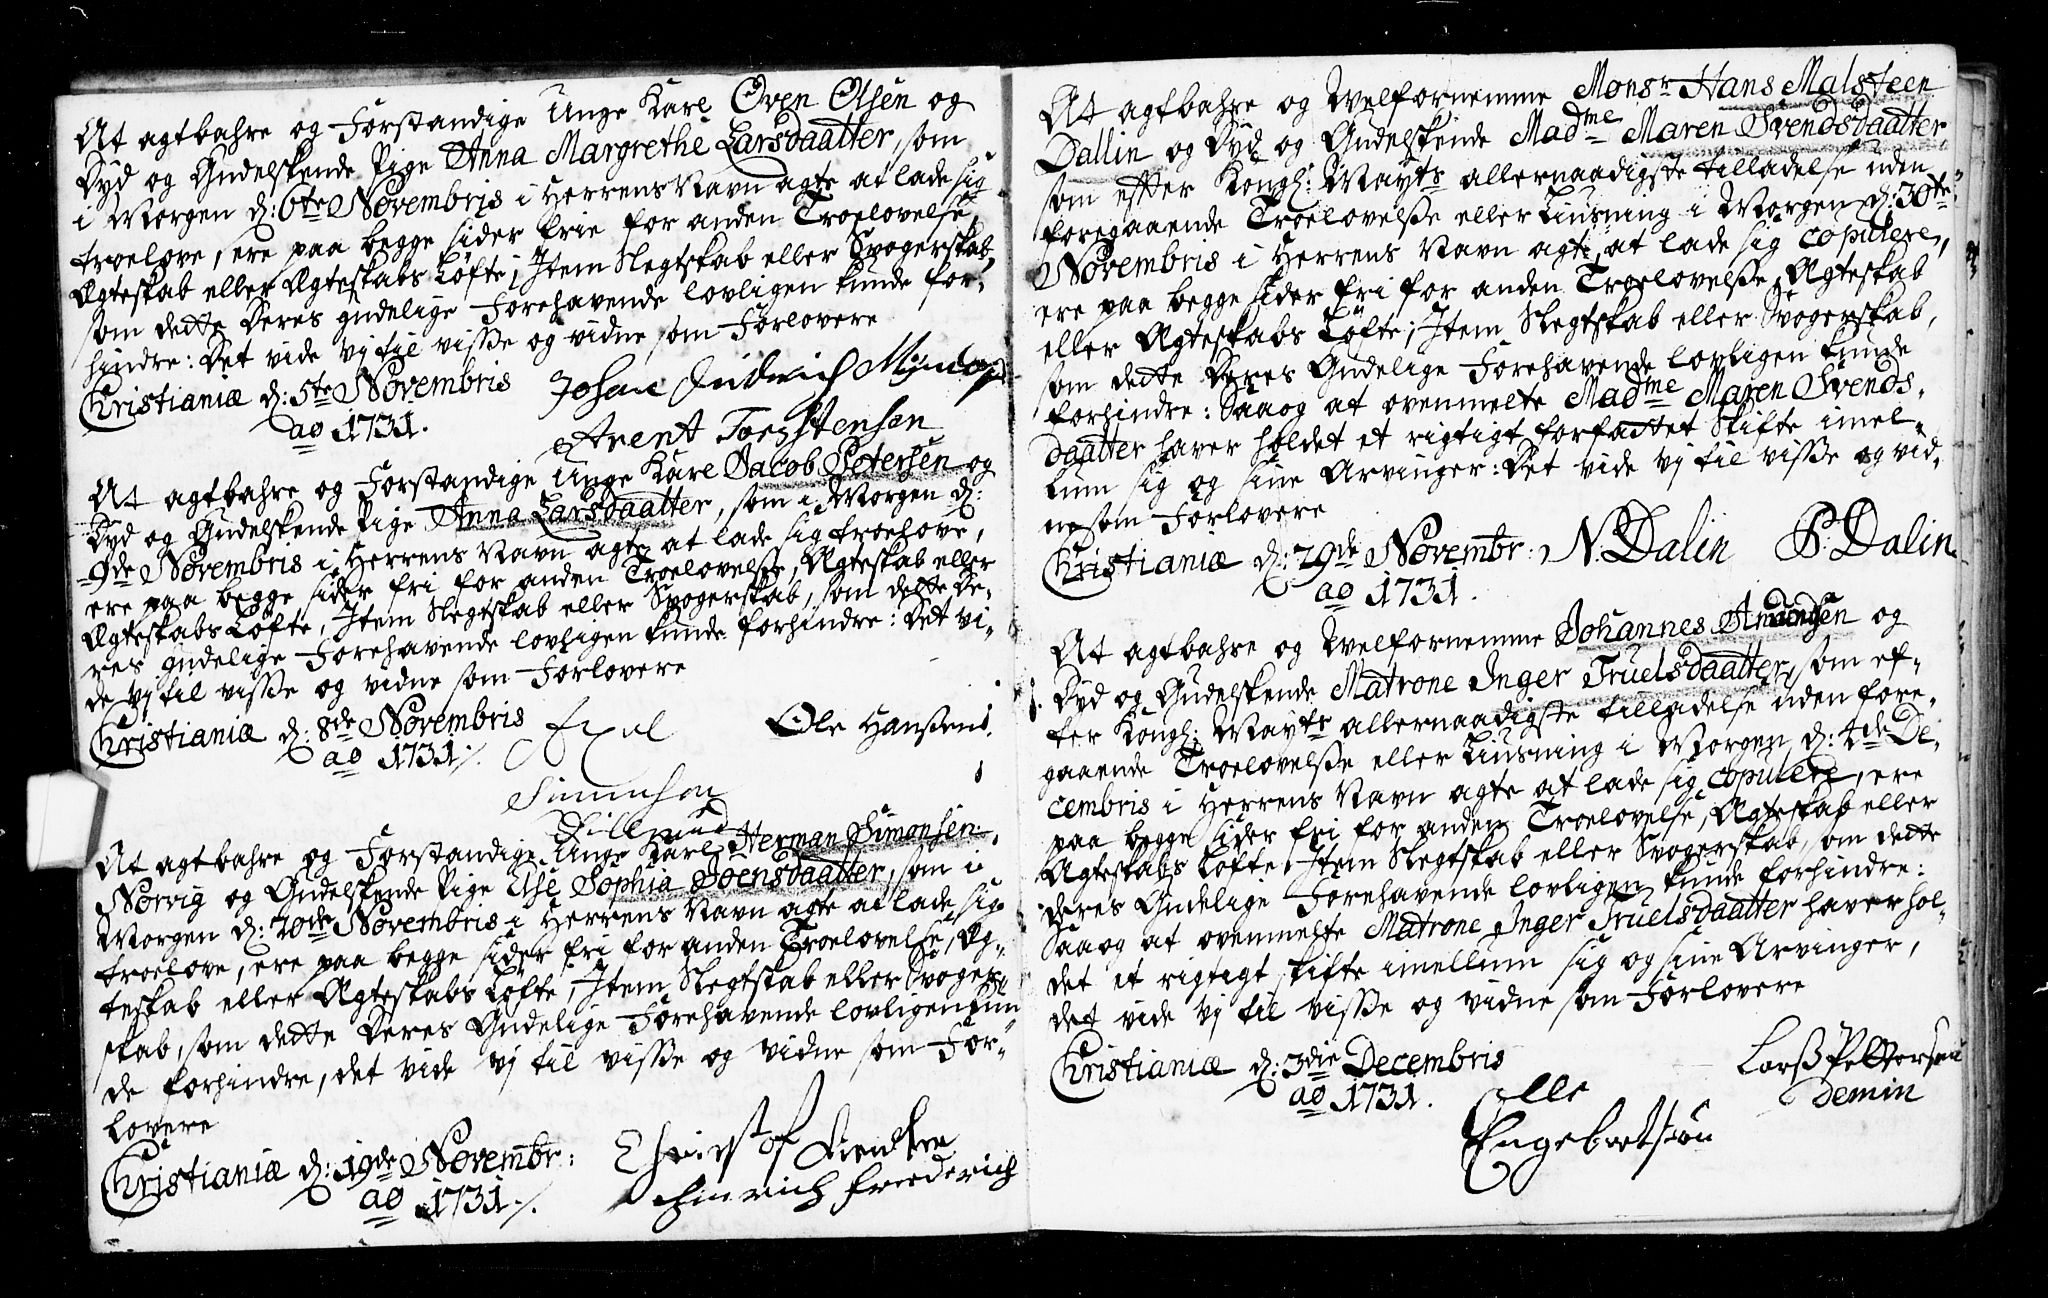 At agtbahre og Forstandige Unge Karl Oven Olsen og
Dyd og Gudelskende Pige Anna Margrethe Larsdaatter, som
i Morgen d: 6te Novembris i Herrens Navn agte at lade sig
troelove, ere paa begge sider frie for anden Troelovelse,
Ægteskab eller Ægteskabs Løfte, Item Slegtskab eller Svogerskab,
som dette Deres gudelige Forehavende lovligen kunde for-
hindre: Det vide vj til visse og vidne som Forlovere
Christianiæ d: 5te Novembris
ao 1731.
Johan
Arent Torstensen
At agtbahre og Forstandige Unge Karl Jacob Petersen og
Dyd og Gudelskende Pige Anna Larsdaatter, som i Morgen d:
9de Novembris i Herrens Navn agte at lade sig troelove,
ere paa begge sider fri for anden Troelovelse, Ægteskab eller
Ægteskabs Løfte, Item Slegtskab eller Svogerskab, som dette De-
res gudelige Forehavende lovligen kunde forhindre: Det vi-
de vj til visse og vidne som Forlovere
Christianiæ d: 8de Novembris
ao 1731 ./.
Axel
Ole Hanssen
Simensen
At agtbahre og Forstandige Unge Karl Herman Simonsen
Norvig og Gudelskende Pige Else Sophia Joensdaatter, som i
Morgen d: 20de Novembris i Herrens Navn agte at lade sig
troelove, ere paa begge sider fri for anden Troelovelse, Æg-
teskab eller Ægteskabs Løfte, Item Slegtskab eller Svoger-
skab, som dette Deres Gudelige Forehavende lovligen kun-
de forhindre, det vide vj til visse og vidne som For-
lovere
Christianiæ d: 19de Novembr:
ao 1731 ./.
Christof
Hinrich Friederich
At agtbahre og Welfornemme Monsr Hans Malsteen
Dallin og Dyd og Gudelskende Madme Maren Svendsdaatter
som efter Kongl: Mayts allernaadigste tilladelse uden
foregaaende Troelovelsse eller Liusning i Morgen d: 30te
Novembris i Herrens Navn agte at lade sig copulere,
ere paa begge sider fri for anden Troelovelsse, Ægteskab
eller Ægteskabs Løfte, Item Slegtskab eller Svogerskab,
som dette Deres Gudelige Forehavende lovligen kunde
forhindre: Saa og at ovenmelte Madme Maren Svends-
daatter haver holdet et rigtigt forfattet Skifte imel-
lum sig og sine Arvinger: Det vide vj til visse og vid-
ne som Forlovere
Christianiæ d: 29de Novembr:
ao 1731.
N. Dalin P: Dalin
At agtbahre og Welfornemme Johannes Amundsen og
Dyd og Gudelskende Matrone Inger Truelsdaatter, som ef-
ter Kongl: Mayts allernaadigste tilladelse uden fore-
gaaende Troelovelsse eller Liusning i Morgen d: 4de De-
cembris i Herrens Navn agte at lade sig copulere, ere
paa begge sider fri for anden Troelovelse, Ægteskab eller
Ægteskabs Løfte, Item Slegtskab eller Svogerskab, som dette
deres Gudelige Forehavende lovligen kunde forhindre:
Saa og at ovenmelte Matrone Inger Truelsdaatter haver hol-
det et rigtigt skifte imellum sig og sine Arvinger,
det vide vj til visse og vidne som Forlovere
Christianiæ d: 3die Decembris
ao 1731.
Olle
Engebretsøn
Larss Pettersen
Demin